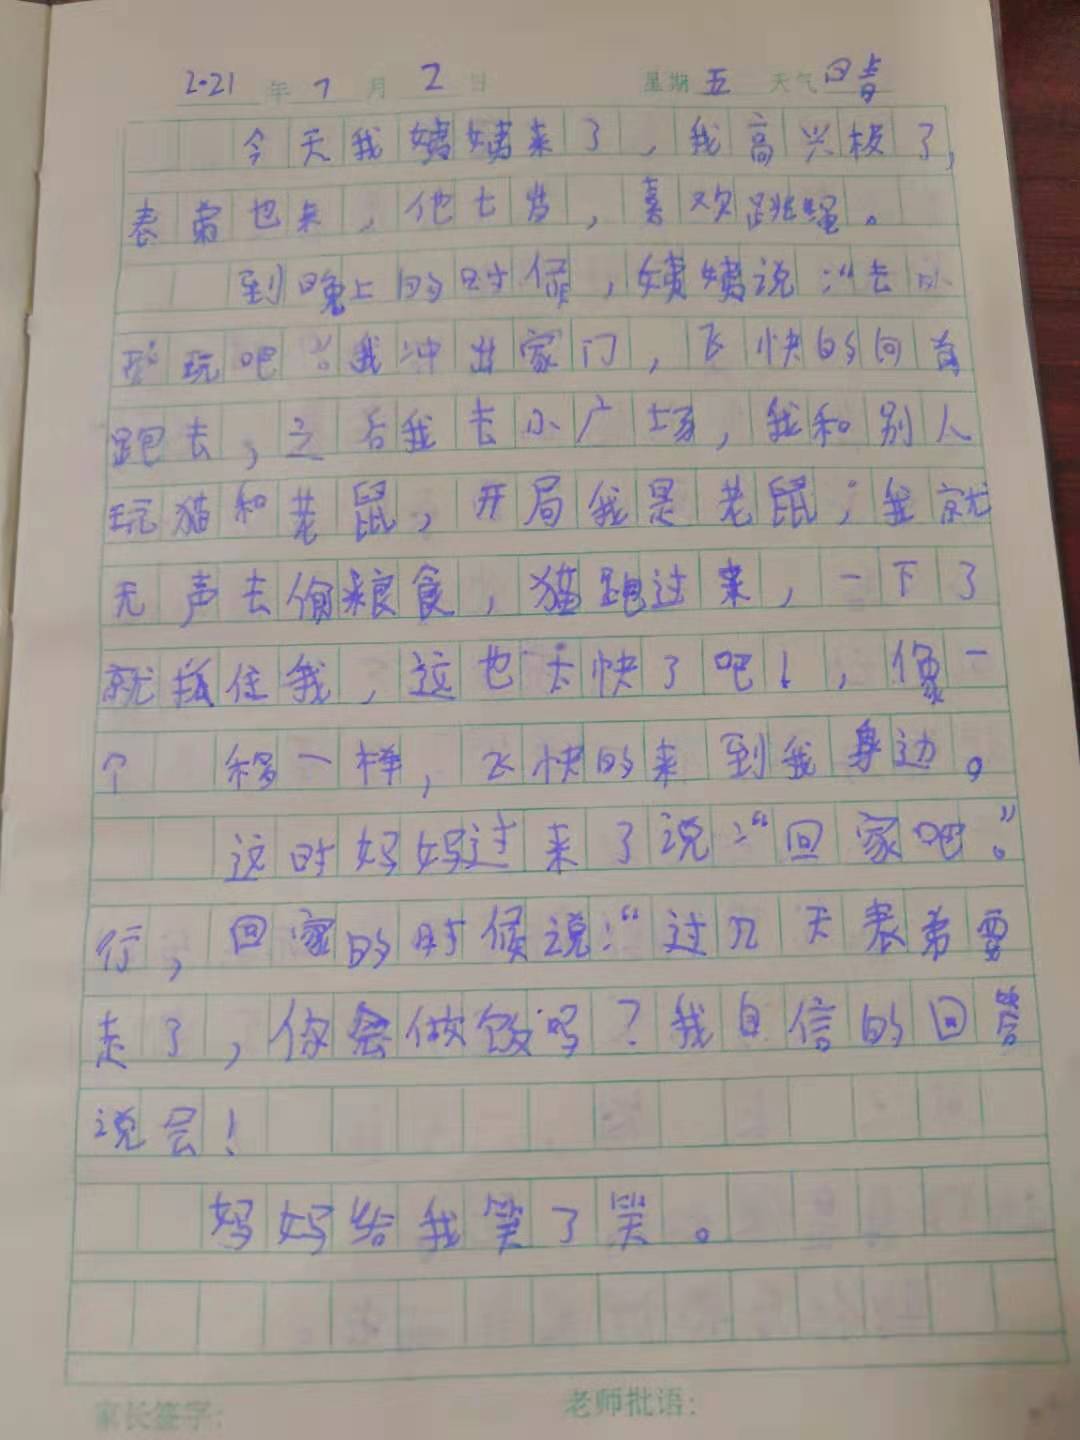 2021年7月2日 星期五 天气晴
今天我姨姨来了，我高兴极了，
表弟也来，他七岁，喜欢跳绳。
到晚上的时候，姨姨说：“去外
玩吧”。我冲出家门，飞快的向前
跑去，之后我去小广场，我和别人
玩猫和老鼠，开局我是老鼠；我就
无声去偷粮食，猫跑过来，一下了
就抓住我，这也太快了吧！，像一
个 移一样，飞快的来到我身边。
这时妈妈过来了说：“回家吧。”
行，回家的时候说：“过几天表弟要
走了，你会做饭吗？我自信的回答
说会！
妈妈给我笑了笑。
家长签字：
老师批语：